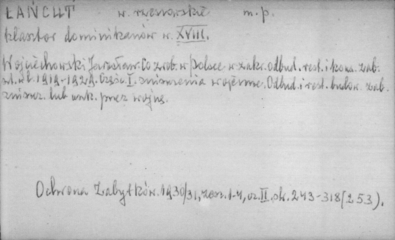 ŁAŃCUT w. rzeszowskie m.p.
klasztor dominikanów w. XVIII.
Wojciechowski Jarosław: Co zrob. w Polsce w zakr. odbud. rest. i kons. zab.
w l. 1919-1929. Część I. Zniszczenia wojenne. Odbud. i rest. budow. zab.
zniszcz. lub uszk. przez wojnę.
Ochrona Zabytków. 1930/31, zesz. 1-4, cz. II. sk. 243-318 (253).